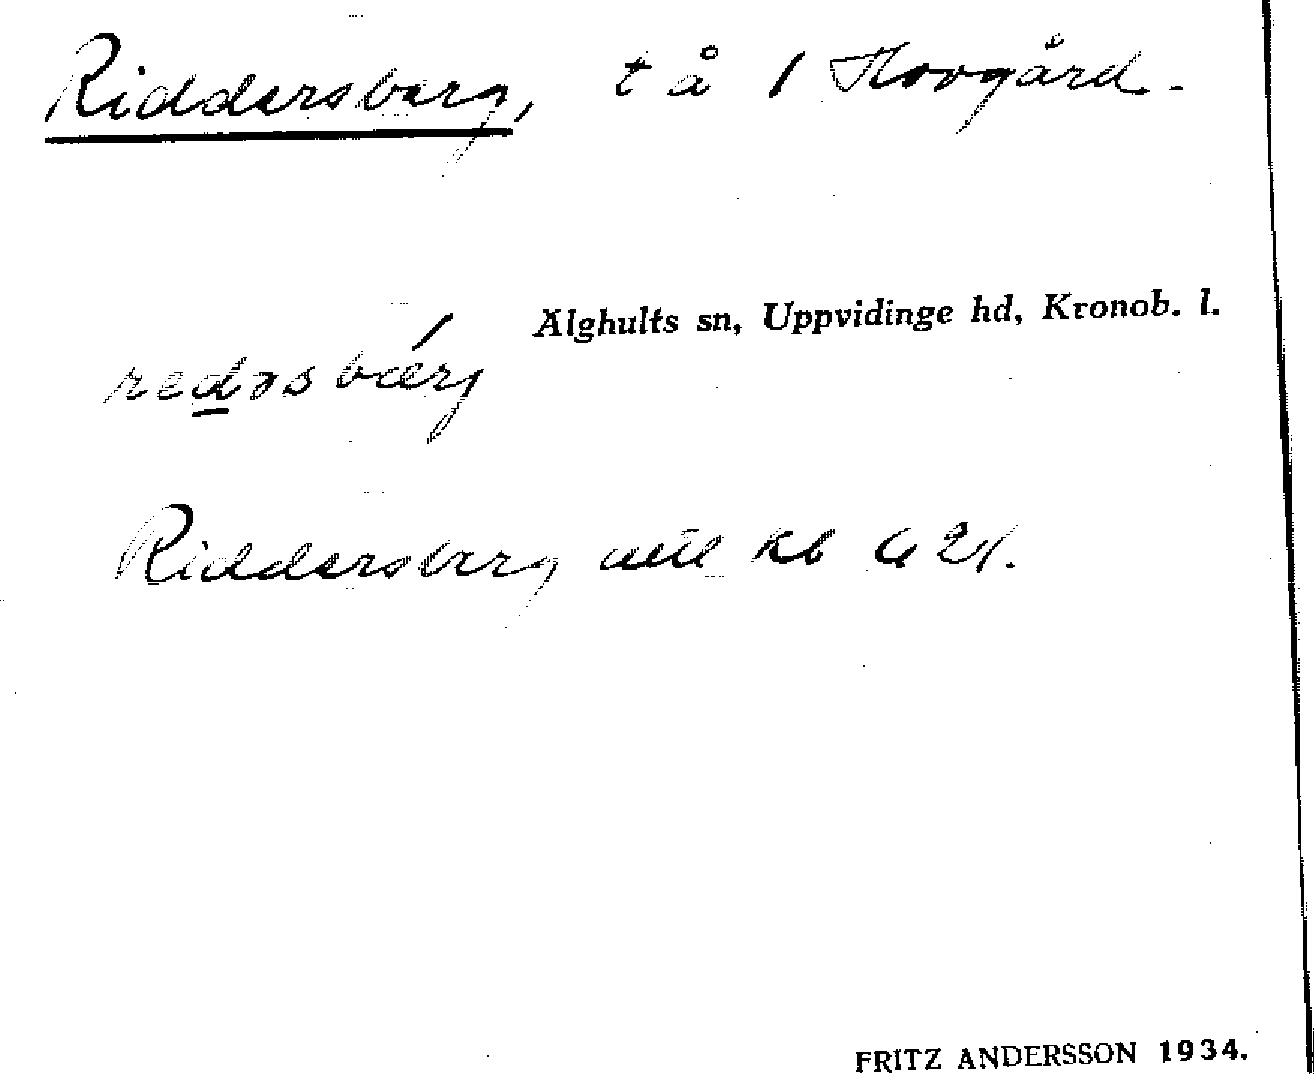 Riddersberg, t å 1 Hovgård.
Älghults sn, Uppvidinge hd, Kronob. l.
redəsbærj
Riddersberg kb
FRITZ ANDERSSON 1934.